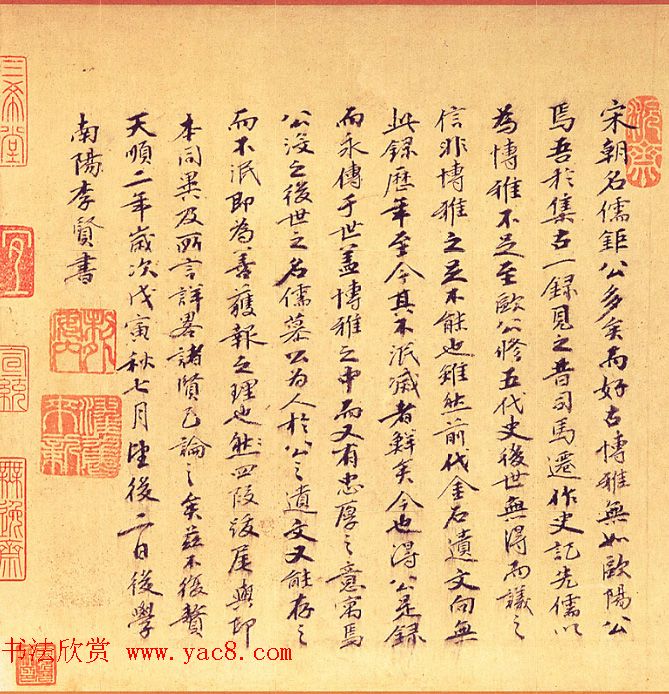 宋朝名儒鉅公多矣而好古博雅無如歐陽公
焉吾於集古一錄見之昔司馬遷作史記先儒以
為博雅不足至歐公修五代史後世無得而議之
信非博雅之足不能也雖然前代金石遺文向無
此錄歷年至今其不泯滅者鮮矣今也得公是錄
而永傳于世蓋博雅之中而又有忠厚之意寓焉
公沒之後世之名儒慕公為人於公之遺文又能存之
而不泯即為善獲報之理也然四段跋尾與印
本同異及所言詳畧諸賢已論之矣茲不復贅
天順二年歲次戊寅秋七月望後二日後學
南陽李賢書
三希堂
宜
宣統
無逸齋
书法欣赏 www.yac8.com